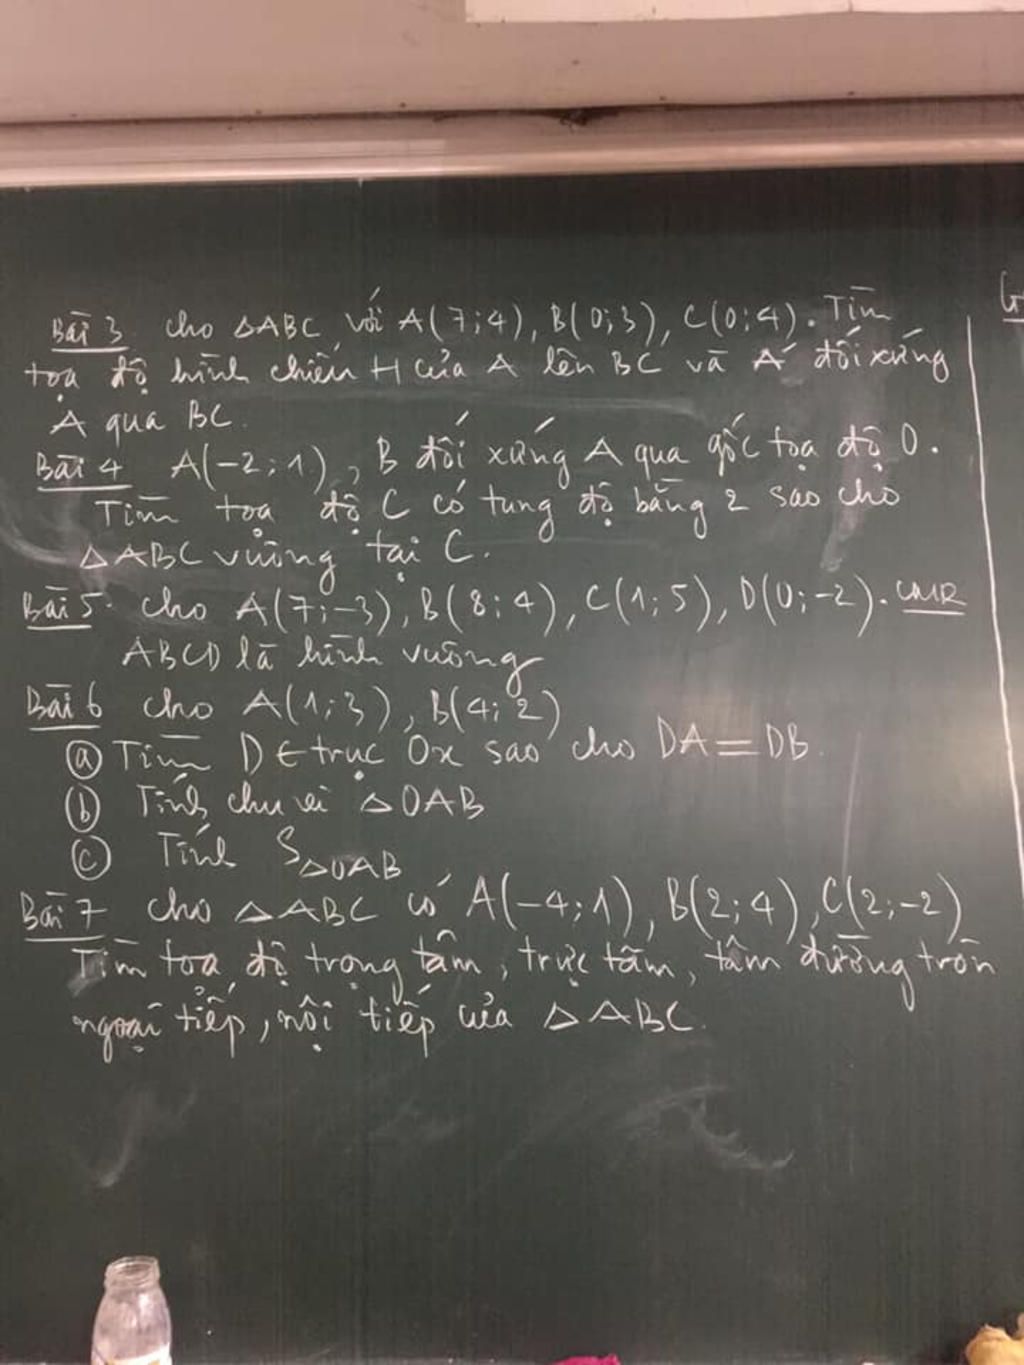 Bài 3 cho △ABC với A(7;4), B(0;3), C(0;4). Tìm
toạ độ hình chiếu H của A lên BC và A' đối xứng
A qua BC.
Bài 4 A(-2;1), B đối xứng A qua gốc toạ độ O.
Tìm toạ độ C có tung độ bằng 2 sao cho
△ABC vuông tại C.
Bài 5. cho A(7;-3), B(8;4), C(1;5), D(0;-2). CMR
ABCD là hình vuông
Bài 6 cho A(1;3), B(4;2)
ⓐ Tìm D ∈ trục Ox sao cho DA = DB.
ⓑ Tính chu vi △OAB
ⓒ Tính S△OAB
Bài 7 cho △ABC có A(-4;1), B(2;4), C(2;-2)
Tìm toạ độ trọng tâm, trực tâm, tâm đường tròn
ngoại tiếp, nội tiếp của △ABC.